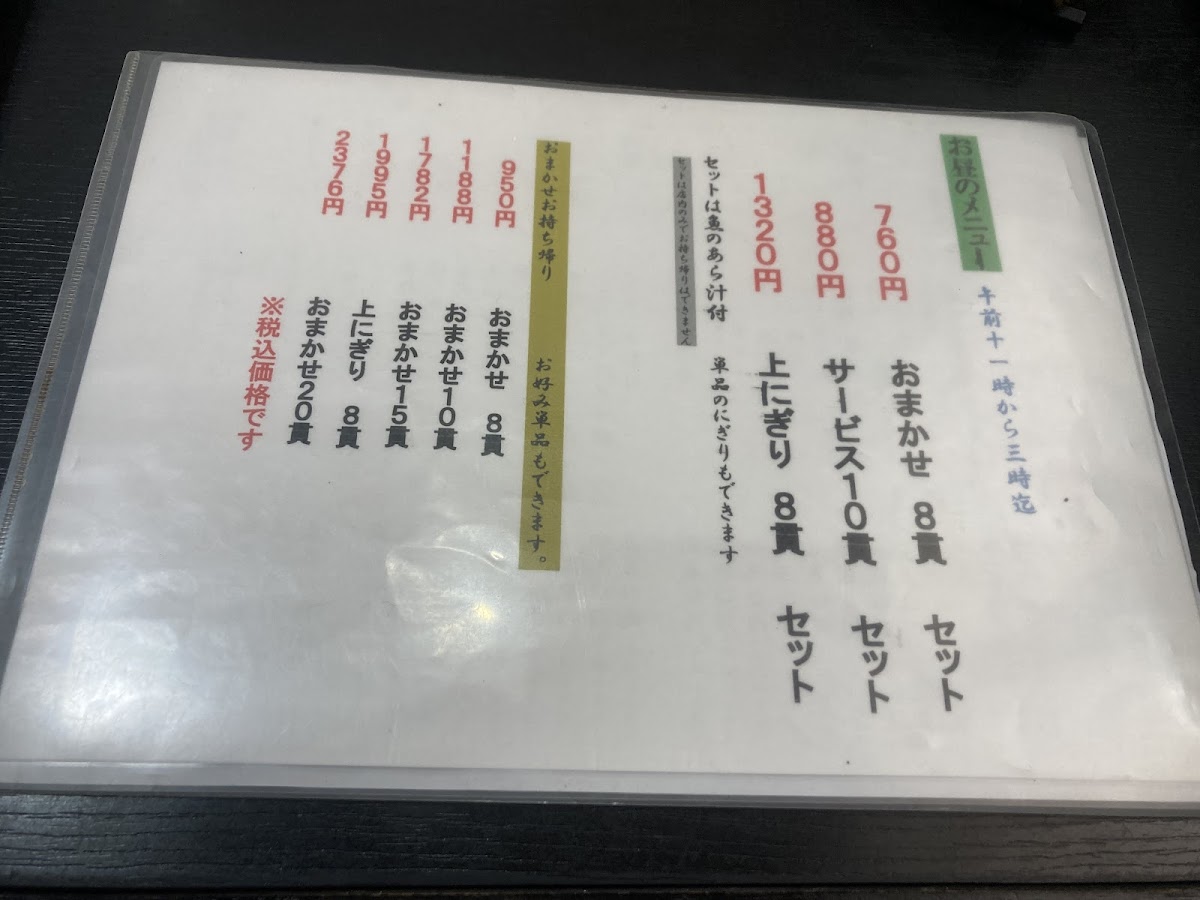 お昼のメニュー
午前十一時から三時迄
760円 おまかせ 8貫 セット
880円 サービス10貫 セット
1320円 上にぎり 8貫 セット
セットは魚のあら汁付 単品のにぎりもできます
セットは店内のみでお持ち帰りはできません
おまかせお持ち帰り お好み単品もできます。
950円 おまかせ 8貫
1188円 おまかせ10貫
1782円 おまかせ15貫
1995円 上にぎり 8貫
2376円 おまかせ20貫
※税込価格です